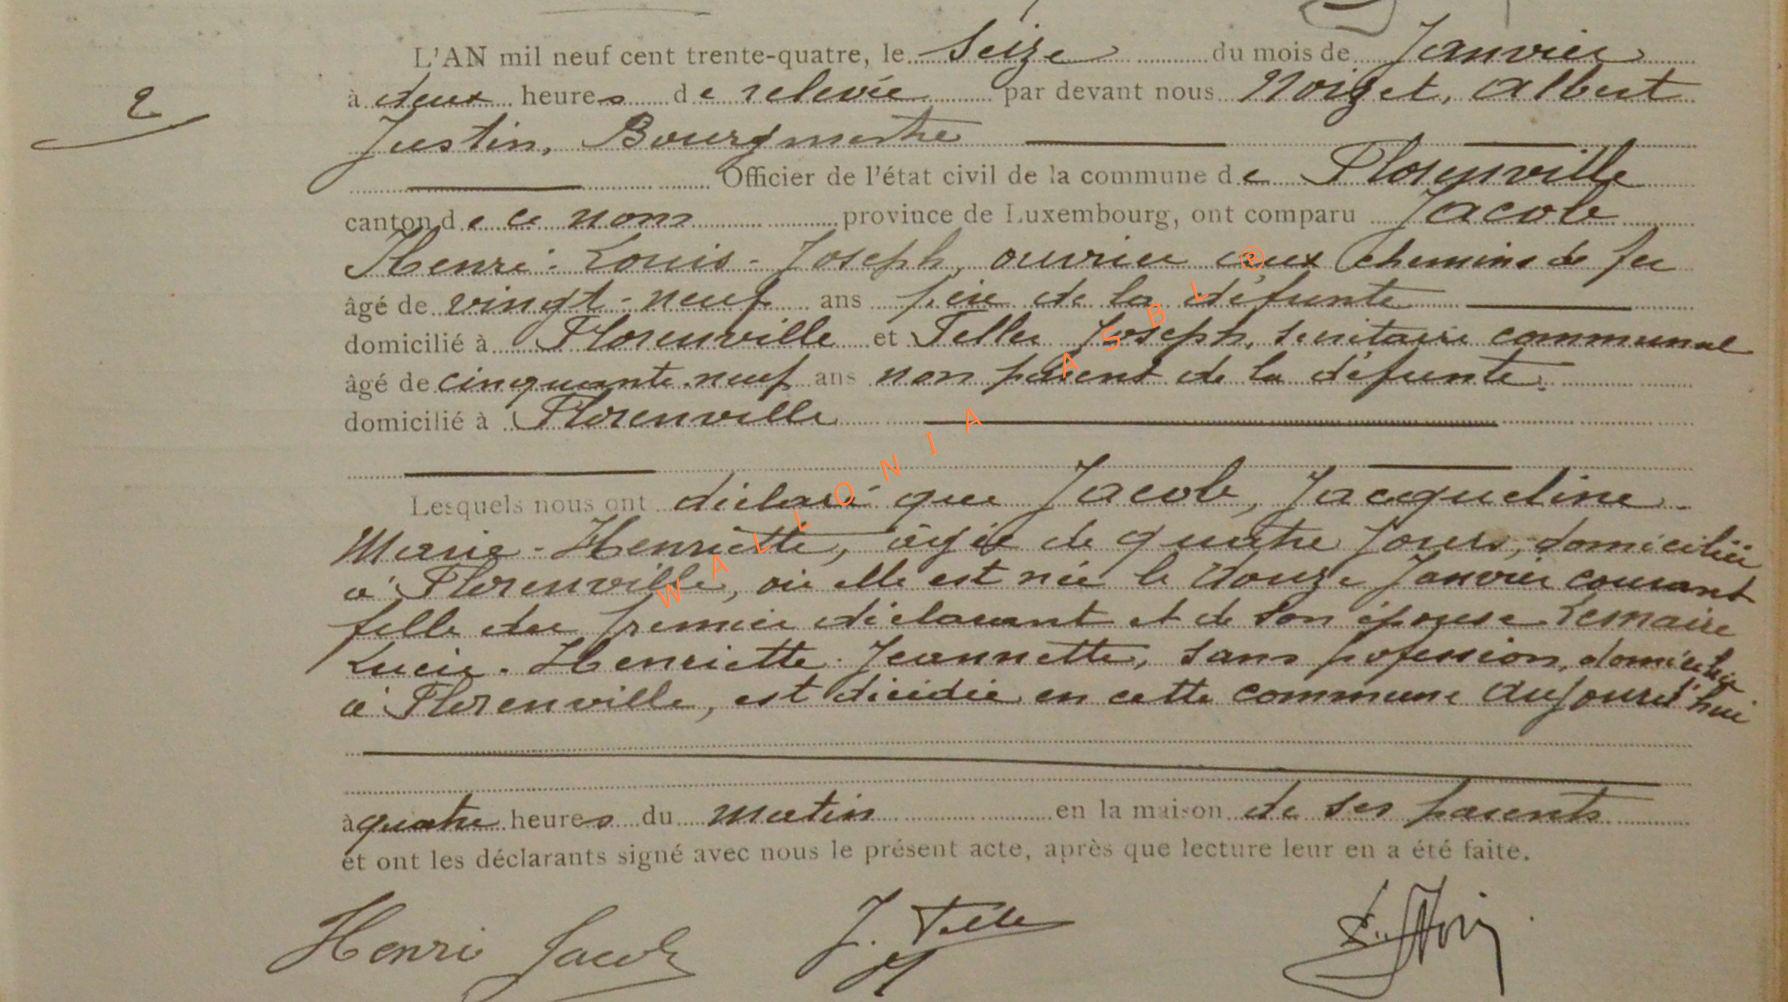 L'AN mil neuf cent trente-quatre, le seize du mois de Janvier
à deux heures de relevée par devant nous Noizet, Albert
2
Justin, Bourgmestre
Officier de l'état civil de la commune de Florenville
canton de ce nom province de Luxembourg, ont comparu Jacob
Henri-Louis-Joseph, ouvrier aux chemins de fer
âgé de vingt-neuf ans père de la défunte
domicilié à Florenville et Feller Joseph, secrétaire communal
âgé de cinquante-neuf ans non parent de la défunte.
domicilié à Florenville
Lesquels nous ont déclaré que Jacob, Jacqueline
Marie-Henriette, âgée de quatre jours, domiciliée
à Florenville, où elle est née le douze Janvier courant
fille du premier déclarant et de son épouse Lemaire
Lucie-Henriette-Jeannette, sans profession, domiciliée
à Florenville, est décédée en cette commune aujourd'hui
à quatre heures du matin en la maison de ses parents
et ont les déclarants signé avec nous le présent acte, après que lecture leur en a été faite.
Henri Jacob J. Feller
WALLONIA ASBL ®